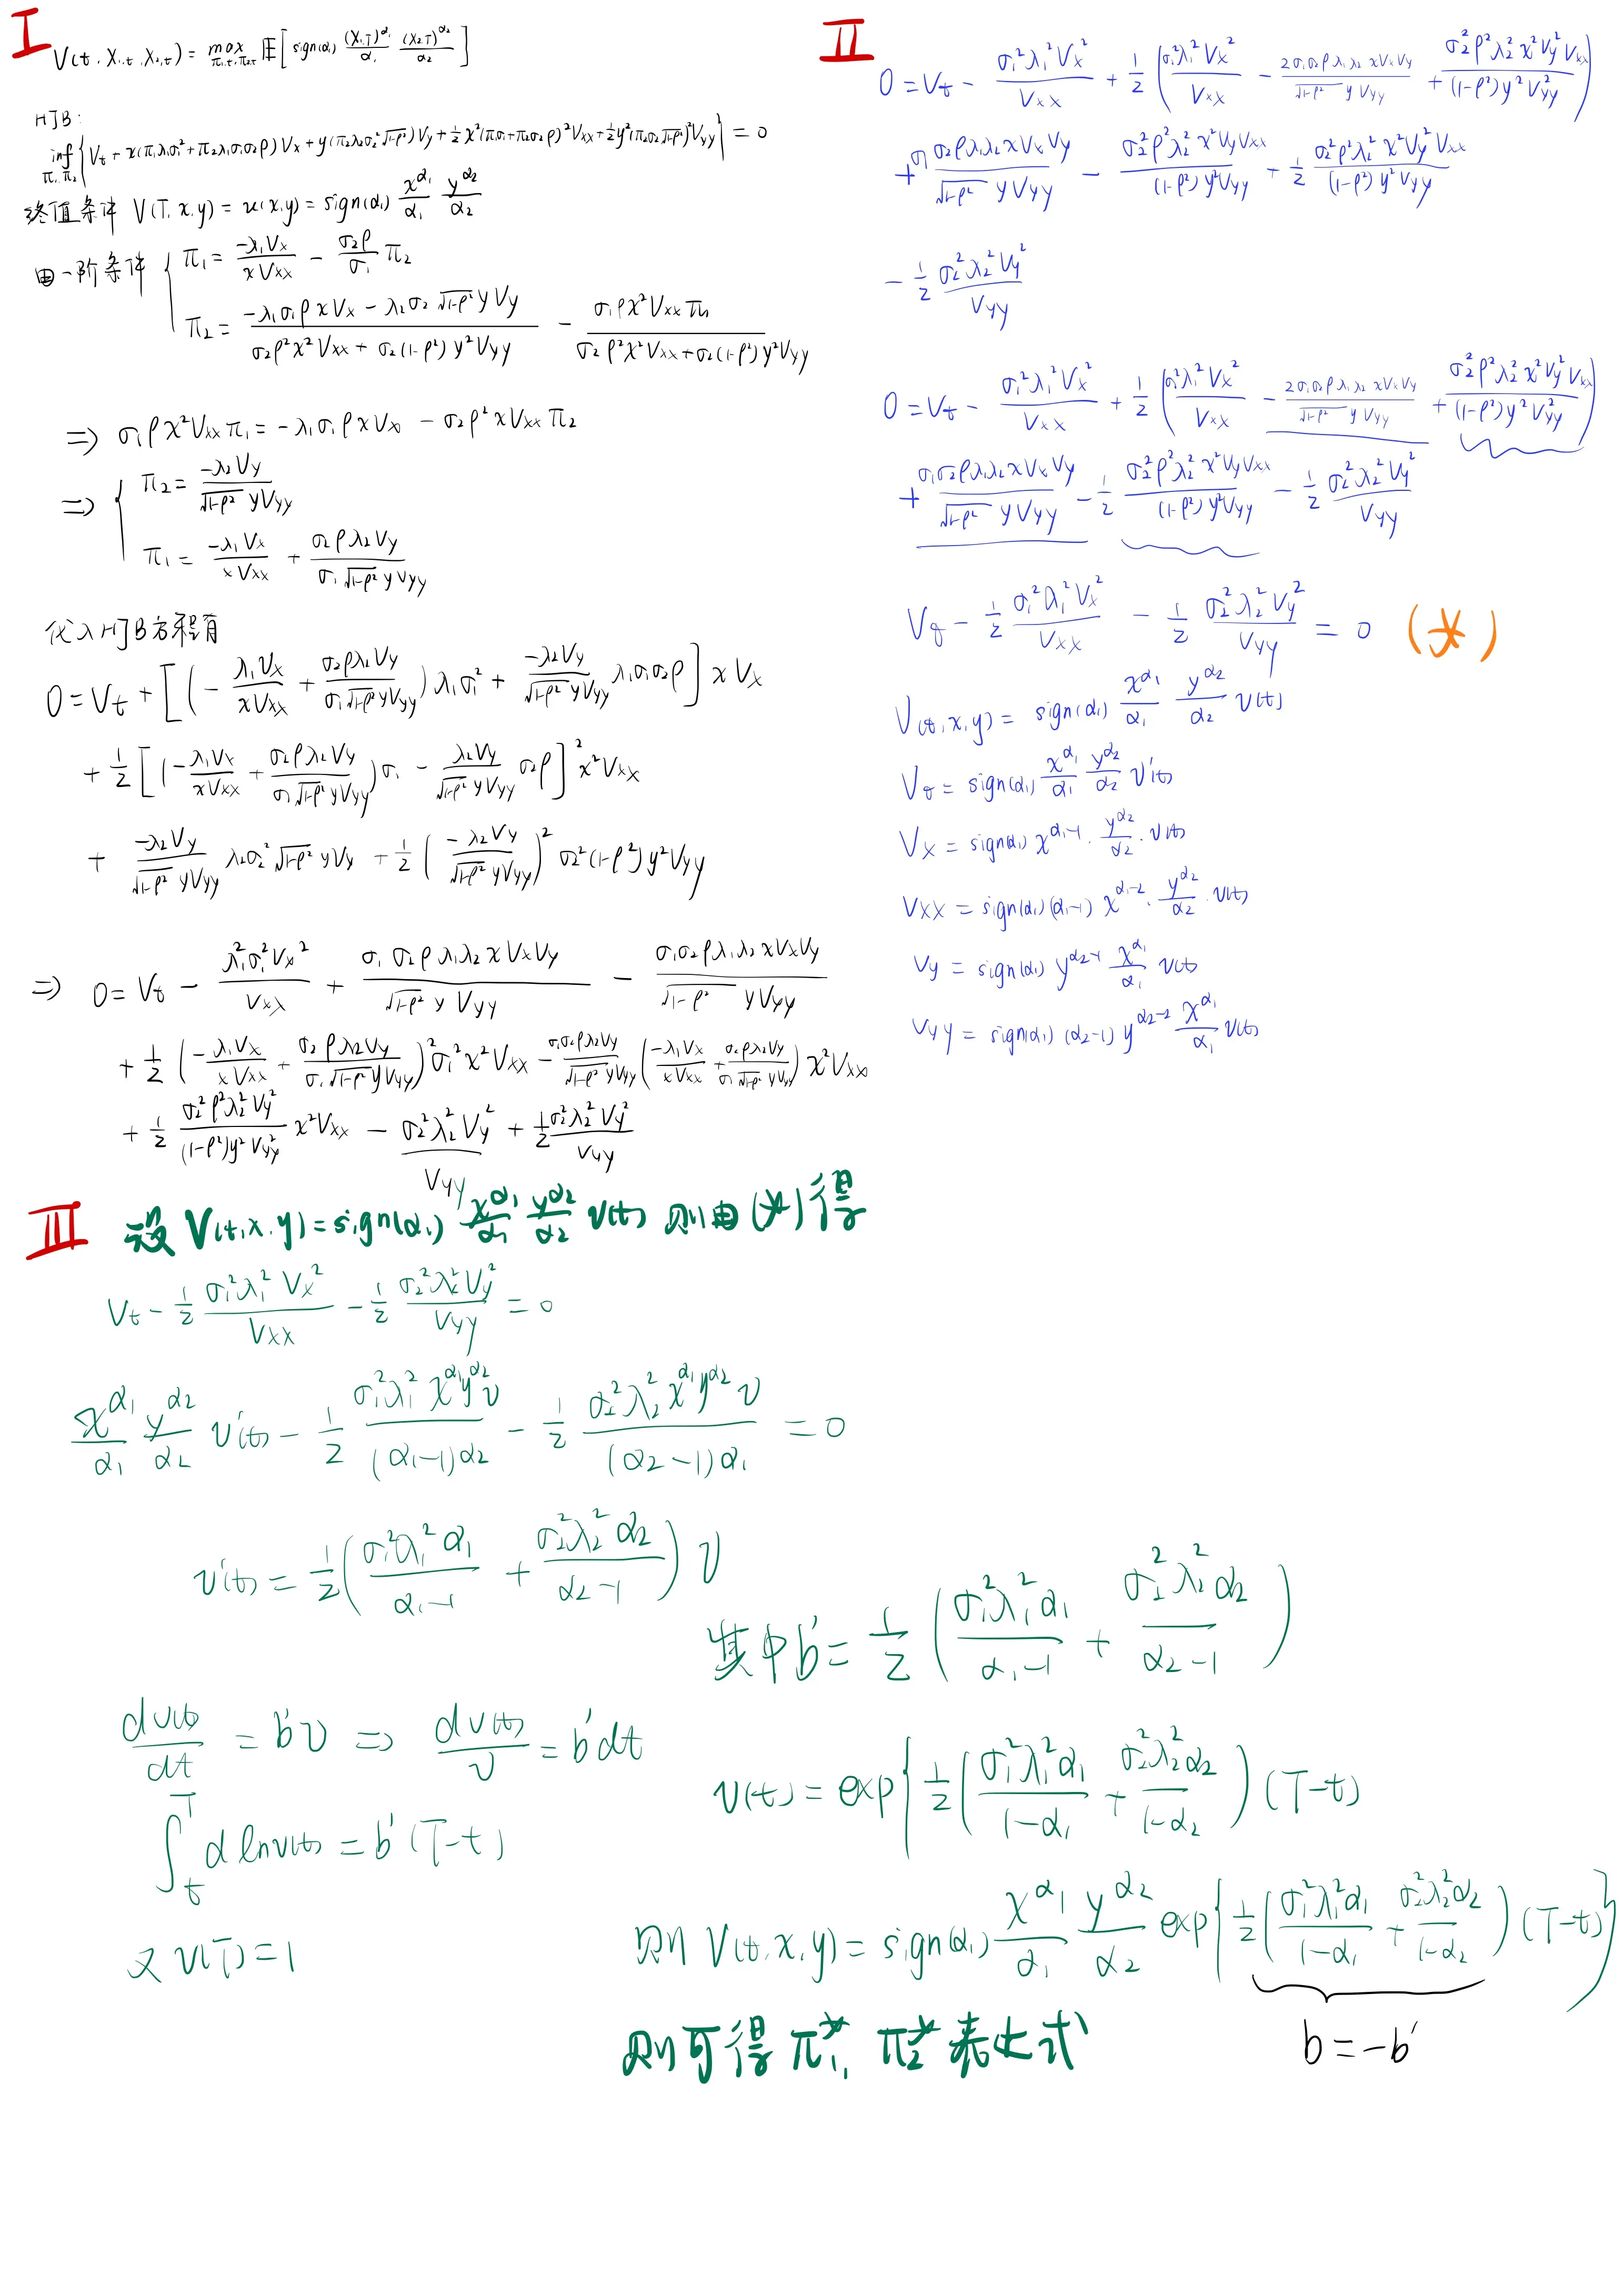 I
V(t, X₁,t, X₂,t) = max_{π₁,t, π₂,t} E[sign(α₁) (X₁,T)^{α₁}/α₁ (X₂,T)^{α₂}/α₂]
HJB:
inf_{π₁,π₂} {V_t + x(π₁λ₁σ₁² + π₂λ₁σ₁σ₂ρ)V_x + y(π₂λ₂σ₂²√(1-ρ²))V_y + 1/2 x²(π₁σ₁+π₂σ₂ρ)²V_xx + 1/2 y²(π₂σ₂√(1-ρ²))²V_yy} = 0
终值条件 V(T, x, y) = u(x, y) = sign(α₁) x^{α₁}/α₁ y^{α₂}/α₂
由一阶条件 { π₁ = -λ₁V_x/(xV_xx) - (σ₂ρ/σ₁) π₂
π₂ = (-λ₁σ₁ρxV_x - λ₂σ₂√(1-ρ²) yV_y)/(σ₂ρ²x²V_xx + σ₂(1-ρ²)y²V_yy) - σ₁ρx²V_xx π₁/(σ₂ρ²x²V_xx + σ₂(1-ρ²)y²V_yy)
⇒ σ₁ρx²V_xx π₁ = -λ₁σ₁ρxV_x - σ₂ρ²xV_xx π₂
⇒ { π₂ = -λ₂V_y/(√(1-ρ²) yV_yy)
π₁ = -λ₁V_x/(xV_xx) + σ₂ρλ₂V_y/(σ₁√(1-ρ²) yV_yy)
代入HJB方程有
0 = V_t + [(-λ₁V_x/(xV_xx) + σ₂ρλ₂V_y/(σ₁√(1-ρ²) yV_yy))λ₁σ₁² + -λ₂V_y/(√(1-ρ²) yV_yy) λ₁σ₁σ₂ρ] xV_x
+ 1/2 [(-λ₁V_x/(xV_xx) + σ₂ρλ₂V_y/(σ₁√(1-ρ²) yV_yy))σ₁ - λ₂V_y/(√(1-ρ²) yV_yy) σ₂ρ]² x²V_xx
+ -λ₂V_y/(√(1-ρ²) yV_yy) λ₂σ₂²√(1-ρ²) yV_y + 1/2 (-λ₂V_y/(√(1-ρ²) yV_yy))² σ₂²(1-ρ²)y²V_yy
⇒ 0 = V_t - λ₁²σ₁²V_x²/V_xx + σ₁σ₂ρλ₁λ₂xV_xV_y/(√(1-ρ²) yV_yy) - σ₁σ₂ρλ₁λ₂xV_xV_y/(√(1-ρ²) yV_yy)
+ 1/2 (-λ₁V_x/(xV_xx) + σ₂ρλ₂V_y/(σ₁√(1-ρ²) yV_yy))² σ₁²x²V_xx - σ₁σ₂ρλ₂V_y/(√(1-ρ²) yV_yy) (-λ₁V_x/(xV_xx) + σ₂ρλ₂V_y/(σ₁√(1-ρ²) yV_yy)) x²V_xx
+ 1/2 σ₂²ρ²λ₂²V_y²/((1-ρ²)y²V_yy²) x²V_xx - σ₂²λ₂²V_y²/V_yy + 1/2 σ₂²λ₂²V_y²/V_yy
II
0 = V_t - σ₁²λ₁²V_x²/V_xx + 1/2 (σ₁²λ₁²V_x²/V_xx - 2σ₁σ₂ρλ₁λ₂xV_xV_y/(√(1-ρ²) yV_yy) + σ₂²ρ²λ₂²x²V_y²V_xx/((1-ρ²)y²V_yy²))
+ σ₁σ₂ρλ₁λ₂xV_xV_y/(√(1-ρ²) yV_yy) - σ₂²ρ²λ₂²x²V_yV_xx/((1-ρ²)y²V_yy) + 1/2 σ₂²ρ²λ₂²x²V_y²V_xx/((1-ρ²)y²V_yy)
- 1/2 σ₂²λ₂²V_y²/V_yy
0 = V_t - σ₁²λ₁²V_x²/V_xx + 1/2 (σ₁²λ₁²V_x²/V_xx - 2σ₁σ₂ρλ₁λ₂xV_xV_y/(√(1-ρ²) yV_yy) + σ₂²ρ²λ₂²x²V_y²V_xx/((1-ρ²)y²V_yy²))
+ σ₁σ₂ρλ₁λ₂xV_xV_y/(√(1-ρ²) yV_yy) - 1/2 σ₂²ρ²λ₂²x²V_yV_xx/((1-ρ²)y²V_yy) - 1/2 σ₂²λ₂²V_y²/V_yy
V_t - 1/2 σ₁²λ₁²V_x²/V_xx - 1/2 σ₂²λ₂²V_y²/V_yy = 0 (*)
V(t,x,y) = sign(α₁) x^{α₁}/α₁ y^{α₂}/α₂ v(t)
V_t = sign(α₁) x^{α₁}/α₁ y^{α₂}/α₂ v'(t)
V_x = sign(α₁) x^{α₁-1} · y^{α₂}/α₂ · v(t)
V_xx = sign(α₁)(α₁-1) x^{α₁-2} · y^{α₂}/α₂ · v(t)
V_y = sign(α₁) y^{α₂-1} x^{α₁}/α₁ v(t)
V_yy = sign(α₁)(α₂-1) y^{α₂-2} x^{α₁}/α₁ v(t)
III
设 V(t,x,y) = sign(α₁) x^{α₁}/α₁ y^{α₂}/α₂ v(t) 则由(*)得
V_t - 1/2 σ₁²λ₁²V_x²/V_xx - 1/2 σ₂²λ₂²V_y²/V_yy = 0
x^{α₁}/α₁ y^{α₂}/α₂ v'(t) - 1/2 σ₁²λ₁²x^{α₁}y^{α₂}v/((α₁-1)α₂) - 1/2 σ₂²λ₂²x^{α₁}y^{α₂}v/((α₂-1)α₁) = 0
v'(t) = 1/2 (σ₁²λ₁²α₁/(α₁-1) + σ₂²λ₂²α₂/(α₂-1)) v
其中b' = 1/2 (σ₁²λ₁²α₁/(α₁-1) + σ₂²λ₂²α₂/(α₂-1))
dv(t)/dt = b'v ⇒ dv(t)/v = b'dt
∫_t^T d ln v(t) = b'(T-t)
又 v(T) = 1
v(t) = exp{1/2 (σ₁²λ₁²α₁/(1-α₁) + σ₂²λ₂²α₂/(1-α₂)) (T-t)
则 V(t,x,y) = sign(α₁) x^{α₁}/α₁ y^{α₂}/α₂ exp{1/2 (σ₁²λ₁²α₁/(1-α₁) + σ₂²λ₂²α₂/(1-α₂)) (T-t)}
b = -b'
则可得 π₁*, π₂* 表达式